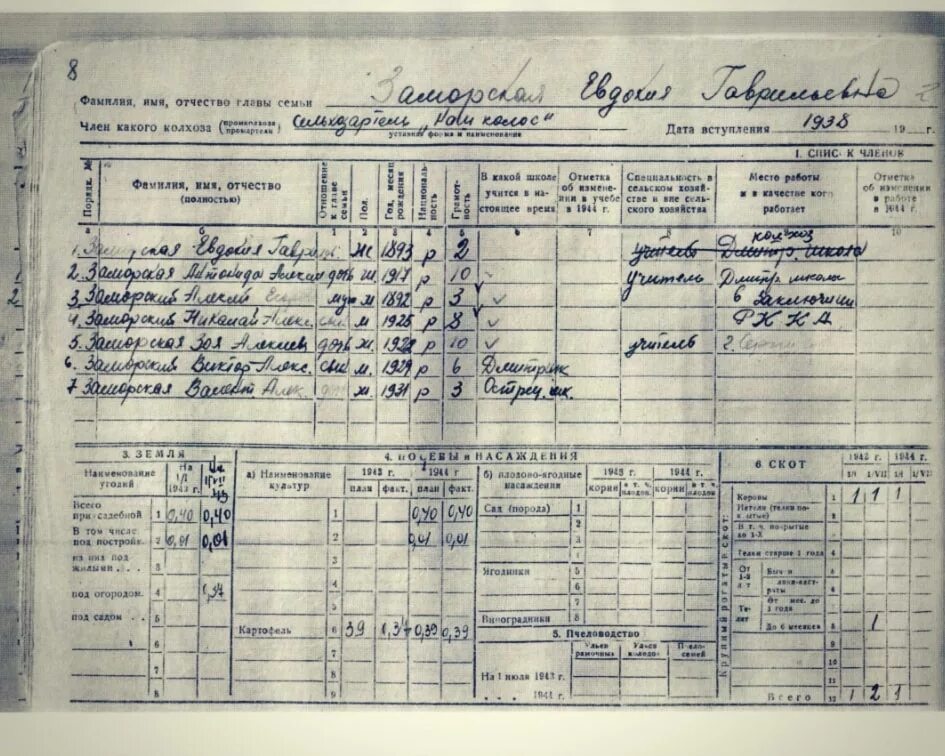 8
Фамилия, имя, отчество главы семьи Заморская Евдокия Гавриловна 2
Член какого колхоза (промколхоза / промартели) Сельхозартель "Наш колос" Дата вступления 1938 19 г.
устав, форма и наименование
1. СПИСОК ЧЛЕНОВ
Порядк. № Фамилия, имя, отчество (полностью) Отношение к главе семьи Пол. Год, месяц рождения Национальность Грамотность В какой школе учится в настоящее время Отметка об изменении в учебе в 1944 г. Специальность в сельском хозяйстве и вне сельского хозяйства Место работы и в качестве кого работает Отметка об изменении в работе в 1944 г.
а б 1 2 3 4 5 6 7 8 9 10
колхоз
1. Заморская Евдокия Гаврил. Ж 1893 р 2 учитель Дмитр. школа
2. Заморская Антонида Алексан дочь ж. 1917 р 10 учитель Дмитр. школа
3 Заморский Алексей муж м 1892 р 3 в заключении
4. Заморский Николай Алекс. сын м 1925 р 8 РККА
5. Заморская Зоя Алексеев дочь ж. 1922 р 10 учитель 2.
6. Заморский Виктор Алекс. сын м. 1929 р 6 Дмитр. шк
7 Заморская Валент Алек. ж. 1931 р 3 Острец. шк.
3. ЗЕМЛЯ
Наименование угодий На 1/I 1943 г.
Всего приусадебной 1 0,40 0,40
В том числе: под постройк. 2 0,01 0,01
из них под жилыми . . . 3
под огородом. 4 0,37
под садом . . 5
6
7
8
4. ПОСЕВЫ и НАСАЖДЕНИЯ
а) Наименование культур 1943 г. план факт. 1944 г план факт.
1 0,40 0,40
2 0,01 0,01
3
4
5
Картофель 6 39 0,37 0,39 0,39
7
8
9
б) плодово-ягодные насаждения 1943 г. корни в т. ч. плодов. 1944 г. корни в т. ч. плодов
Сад (порода) 1
2
3
4
Ягодники 5
6
7
Виноградники 8
5. Пчеловодство
Ульев рамочных Ульев колодо. Пчелосемей
На 1 июля 1943 г.
. . . 1944 г.
6. СКОТ 1943 г. 1944 г.
1/I 1/VII 1/I 1/VII
Крупный рогатый скот:
Коровы 1 1 1 1
Нетели (телки покрытые) 2
В т. ч. покрытые до 1-X
Телки старше 1 года 4
Быки 5
От . . мес. до 1 года
Телят До 6 месяцев 8 1
9
10
11
Всего 12 1 2 1